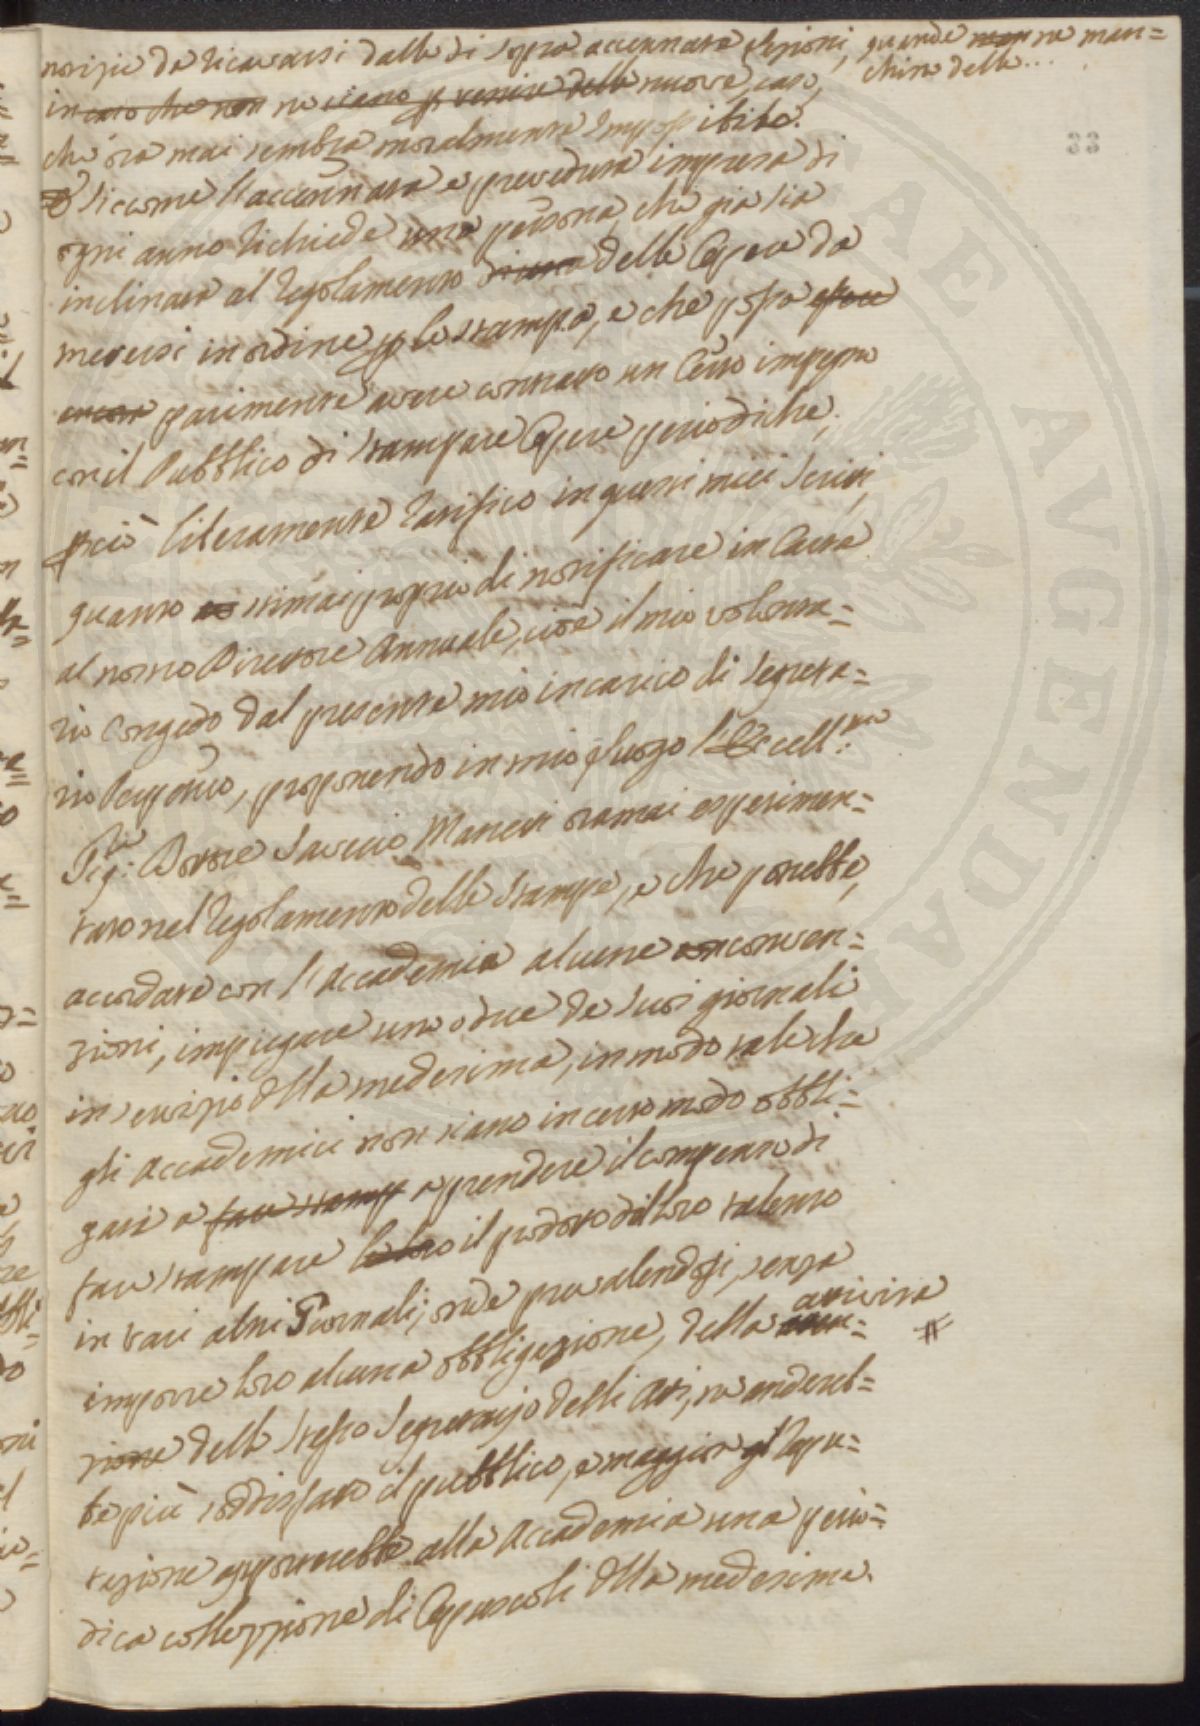 notizie da ricavarsi dalle di sopra accennate Lezioni, quando non ne man=
in caso che non ne siano p venire delle nuove, caso, chino delle...
che ora mai sembra moralmente impossibile.
33
Siccome l'accennata e preveduta impresa di
ogni anno richiede una persona, che gia sia
inclinata al regolamento delle Opere da
mettersi in ordine p le stampe, e che possa
ancora parimente avere contratto un Certo impegno
con il Pubblico di stampare Opere periodiche;
pciò liberamente ratifico in questi miei scritti,
quanto stimai proprio di notificare in Carta
al nostro Direttore Annuale, cioè il mio volonta=
rio Congedo dal presente mio incarico di Segreta=
rio Perpetuo, proponendo in mio luogo l'Eccell.mo
Sig.r Dottore Saverio Manetti oramai esperimen=
tato nel regolamento delle Stampe, e che potrebbe,
accordate con l'Accademia alcune convven=
zioni, impiegare uno o due de suoi giornali
in servizio della medesima, in modo tale che
gli Accademici non siano in certo modo obbli=
gati a fare stamp a prendere il compenso di
fare stampare le loro il prodotto del loro talento
in varj altri Giornali; onde prevalendosi, senza
imporre loro alcuna obbligazione, della attività #
zione dello stesso Segretario delli Atti, ne andereb=
be più soddisfatto il pubblico, e maggior Repu=
tazione apporterebbe alla Accademia una perio=
dica collezzione di Opuscoli della medesima.
AE AVGENDAE